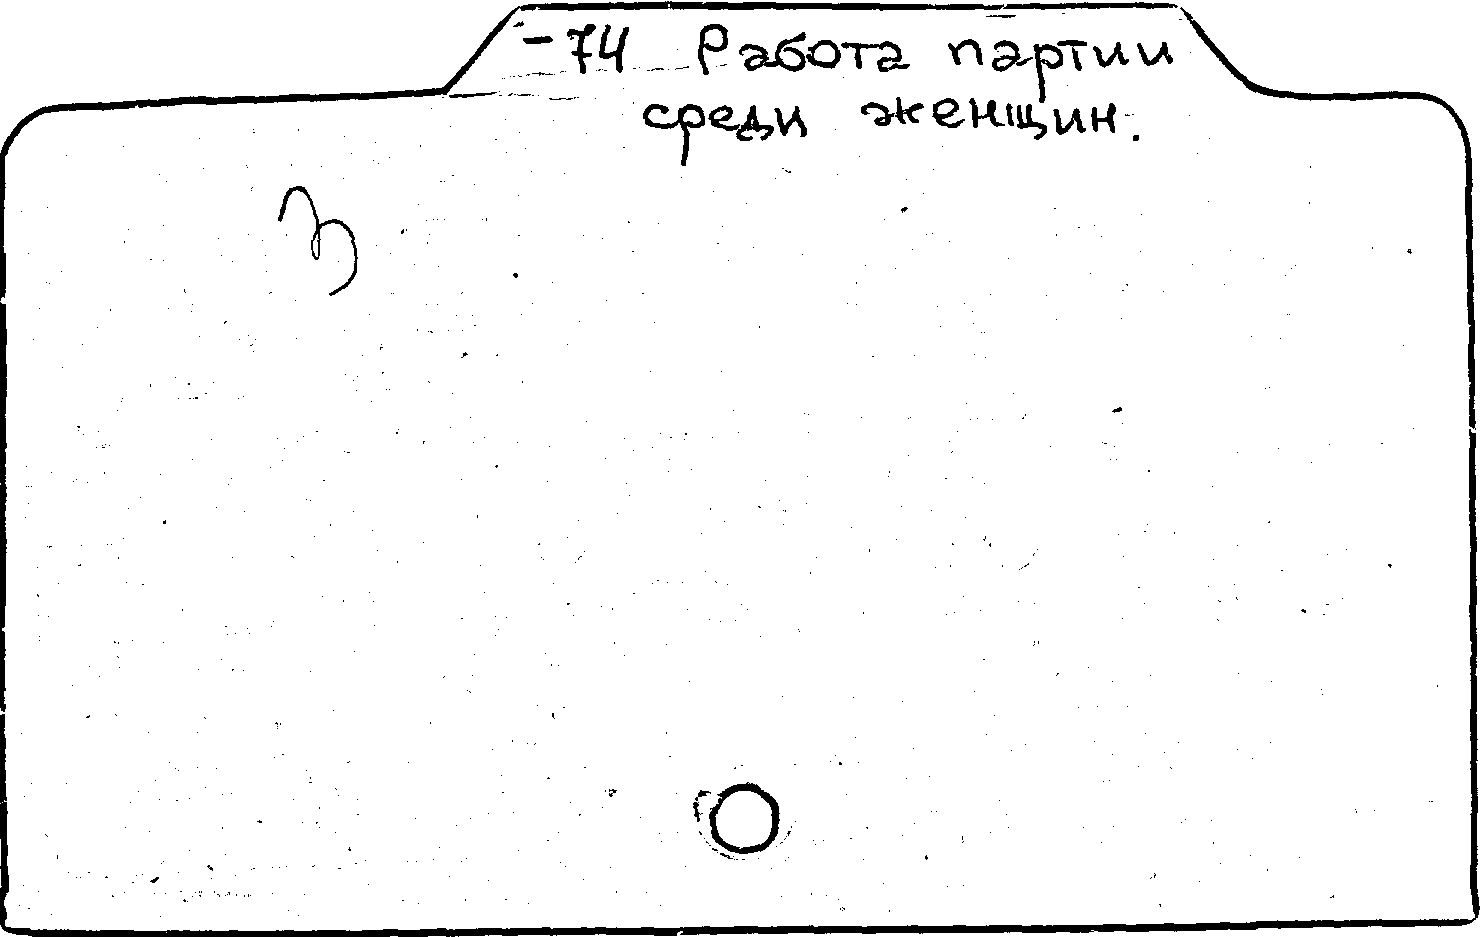 -74 Работа партии
среди женщин.
З